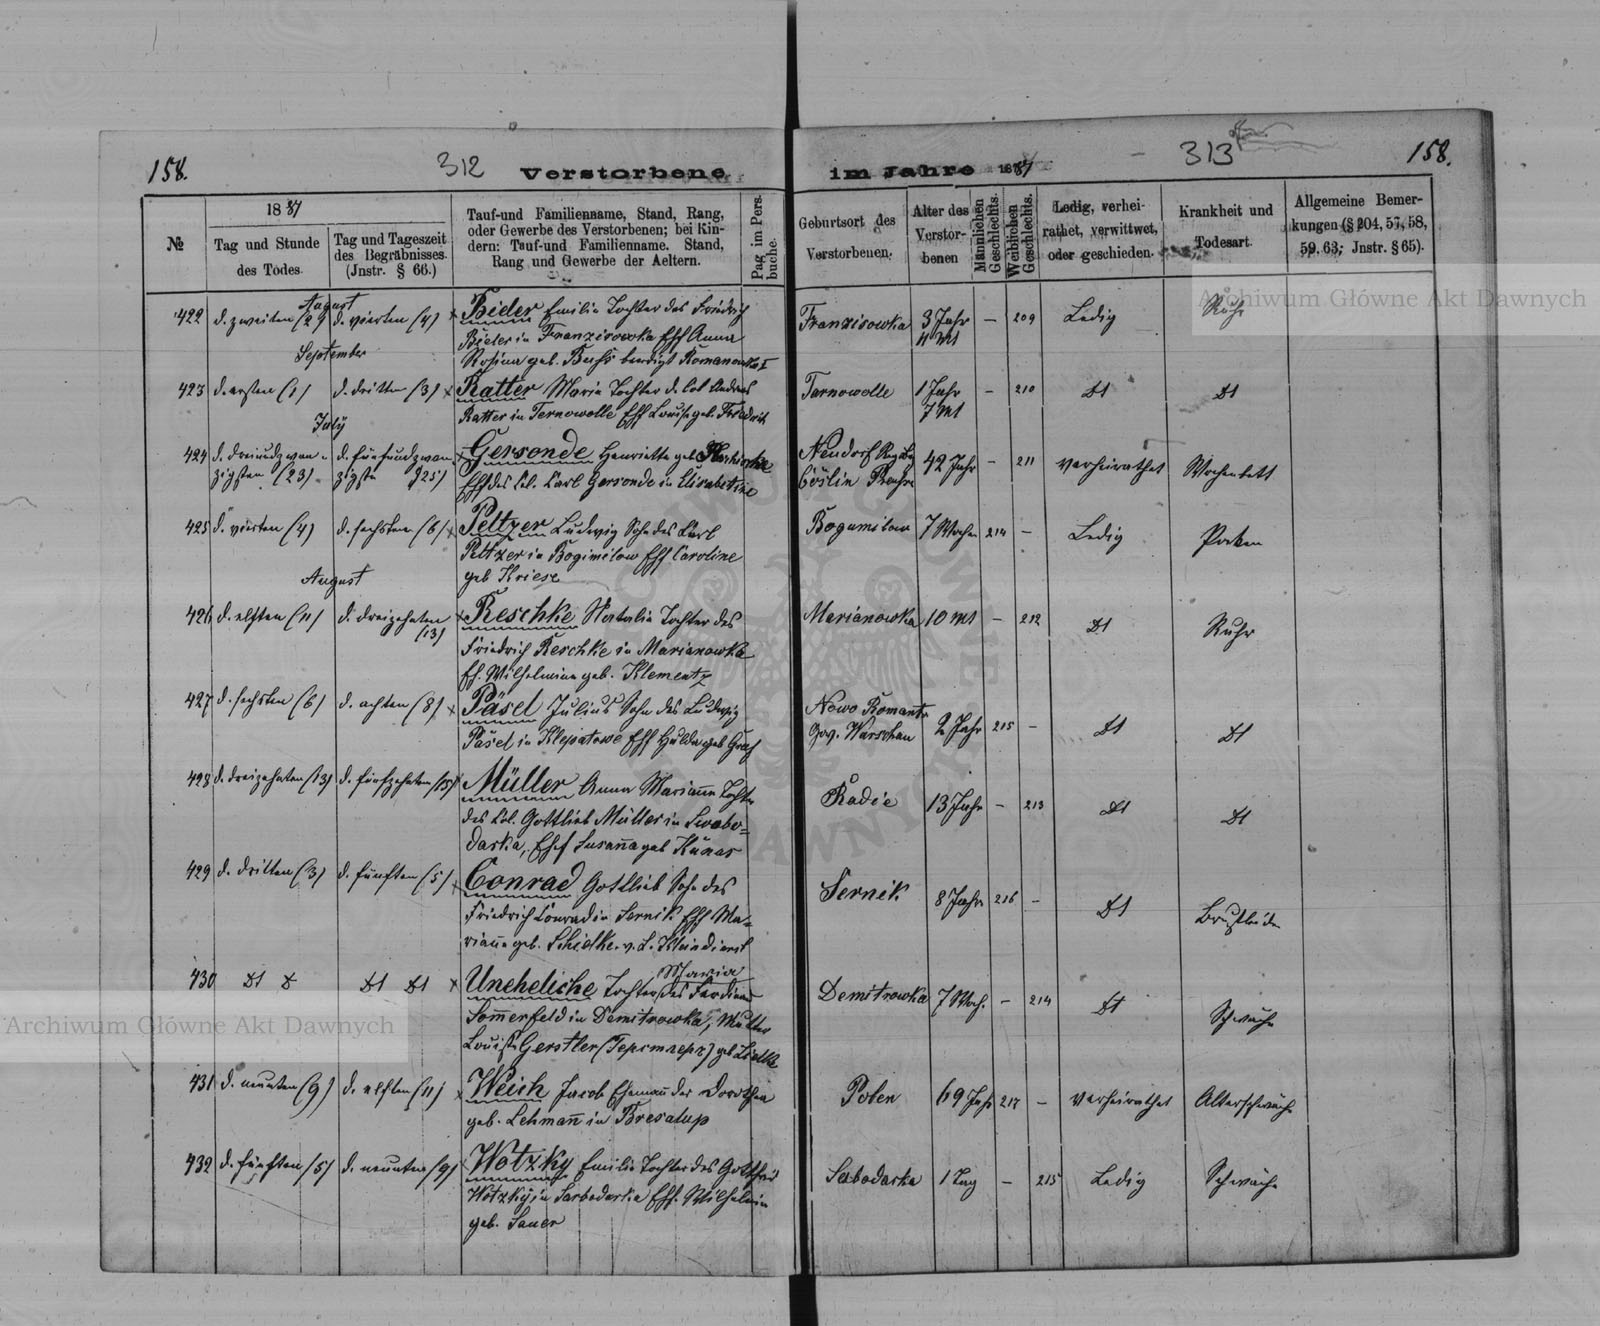 158.
312
Verstorbene
im Jahre 1887
313
158.
№
1887
Tag und Stunde
des Todes.
Tag und Tageszeit
des Begräbnisses.
(Jnstr. § 66.)
Tauf-und Familienname, Stand, Rang,
oder Gewerbe des Verstorbenen; bei Kin-
dern: Tauf-und Familienname. Stand,
Rang und Gewerbe der Aeltern.
Pag im Pers.
buche.
Geburtsort des
Verstorbenen.
Alter des
Verstor-
benen
Männlichen
Geschlechts.
Weiblichen
Geschlechts.
Ledig, verhei-
rathet, verwittwet,
oder geschieden.
Krankheit und
Todesart.
Allgemeine Bemer-
kungen (§ 204, 57, 58,
59, 63; Jnstr. § 65).
August
422 d. zweiten (2) d. vierten (4) x Bieler Emilie Tochter des Friedrich
Bieler in Franzisowka Eff Anna
Rosina geb. Buchs beerdigt Romanowka I
Franzisowka 3 Jahr 4 Mt — 209 Ledig Ruhr
September
423 d. ersten (1) d. dritten (3) x Ratter Maria Tochter d. Col Andreas
Ratter in Ternowolle Eff Louise geb. Friedrich
Tarnowolle 1 Jahr 7 Mt — 210 dt dt
July
424 d. dreiundzwan- d. fünfundzwan- x Gersonde Henriette geb.
zigsten (23) zigsten (25) Eff des Col. Carl Gersonde in Elisabetine
Neudorf
Cöslin 42 Jahr — 211 verheirathet Wochenbett
425 d. vierten (4) d. sechsten (6) x Peltzer Ludwig Sohn des Carl
Peltzer in Bogimilow Eff Caroline
geb Kriese
Bogumilow 7 Wochen 214 — Ledig Pocken
August
426 d. elften (11) d. dreizehnten (13) x Reschke Natalie Tochter des
Friedrich Reschke in Marianowka
Ef. Wilhelmine geb. Klementz
Marianowka 10 Mt — 212 dt Ruhr
427 d. sechsten (6) d. achten (8) x Päsel Julius Sohn des Ludwig
Päsel in Klepatowe Eff Hulda geb Graf
Nowo
Gov. Warschau 2 Jahr 215 — dt dt
428 d. dreizehnten (13) d. fünfzehnten (15) x Müller Anna Mariane Tochter
des Col. Gottlieb Müller in Swobo-
darka, Ehef Susanna geb Künas
Radie 13 Jahr — 213 dt dt
429 d. dritten (3) d. fünften (5) x Conrad Gottlieb Sohn des
Friedrich Conrad in Sernik Eff Ma-
rianne geb. Schielke. v. L. Kleindienst
Sernik 8 Jahr 216 — dt Brustleiden
430 dt dt dt dt x Uneheliche Tochter Maria des Ferdinand
Sommerfeld in Demitrowka, Mutter
Louise Gerstler (Герстлерг) geb
Demitrowka 7 Woch. — 214 dt Schwäche
431 d. neunten (9) d. elften (11) x Weich Jacob Ehemann der Dorothea
geb. Lehmann in Bresalup
Polen 69 Jahr 217 — verheirathet Altersschwäche
432 d. fünften (5) d. neunten (9) x Wotzky Emilie Tochter des Gottfried
Wotzky in Sarbodarka Eff. Wilhelmine
geb. Sauer
Sabodarka 1 Tag — 215 Ledig Schwäche
Archiwum Główne Akt Dawnych
Archiwum Główne Akt Dawnych